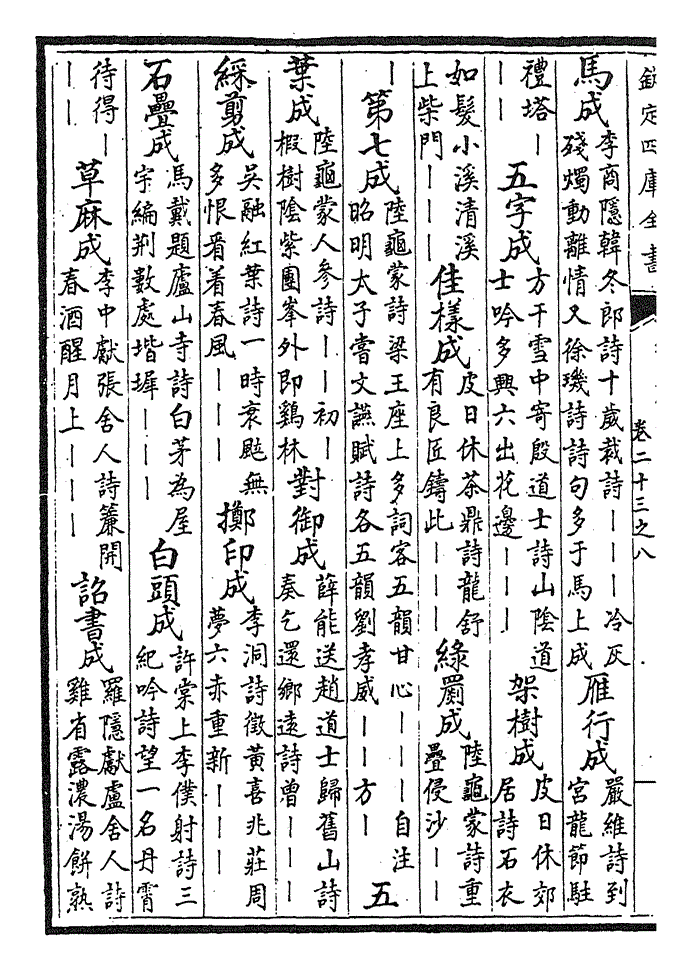 欽定四庫全書 卷二十三之八
馬成 李商隱韓冬郎詩十歲裁詩丨丨丨冷灰殘燭動離情又徐璣詩詩句多于馬上成 雁行成 嚴維詩到宮龍節駐
禮塔丨丨丨 五字成 方干雪中寄殷道士詩山陰道士吟多興六出花邊丨丨丨 架樹成 皮日休郊居詩石衣
如髮小溪清溪上柴門丨丨丨 佳樣成 皮日休茶鼎詩龍舒有良匠鑄此丨丨丨 緣罽成 陸龜蒙詩重疊侵沙丨丨丨
丨 第七成 陸龜蒙詩梁王座上多詞客五韻甘心丨丨丨自注昭明太子嘗文讌賦詩各五韻劉孝威丨丨方丨 五
葉成 陸龜蒙人參詩丨丨初丨椵樹陰紫團峯外即鷄林 對御成 薛能送趙道士歸舊山詩奏乞還鄉遠詩曾丨丨丨
綵剪成 吳融紅葉詩一時衰颷無多恨看着春風丨丨丨 擲印成 李洞詩徵黃喜兆莊周夢六赤重新丨丨丨
石疊成 馬戴題廬山寺詩白茅為屋宇編荆數處堦墀丨丨丨 白頭成 許棠上李僕射詩三紀吟詩望一名丹霄
待得丨丨丨 草麻成 李中獻張舍人詩簾開春酒醒月上丨丨丨 詔書成 羅隱獻盧舍人詩雞省露濃湯餅熟